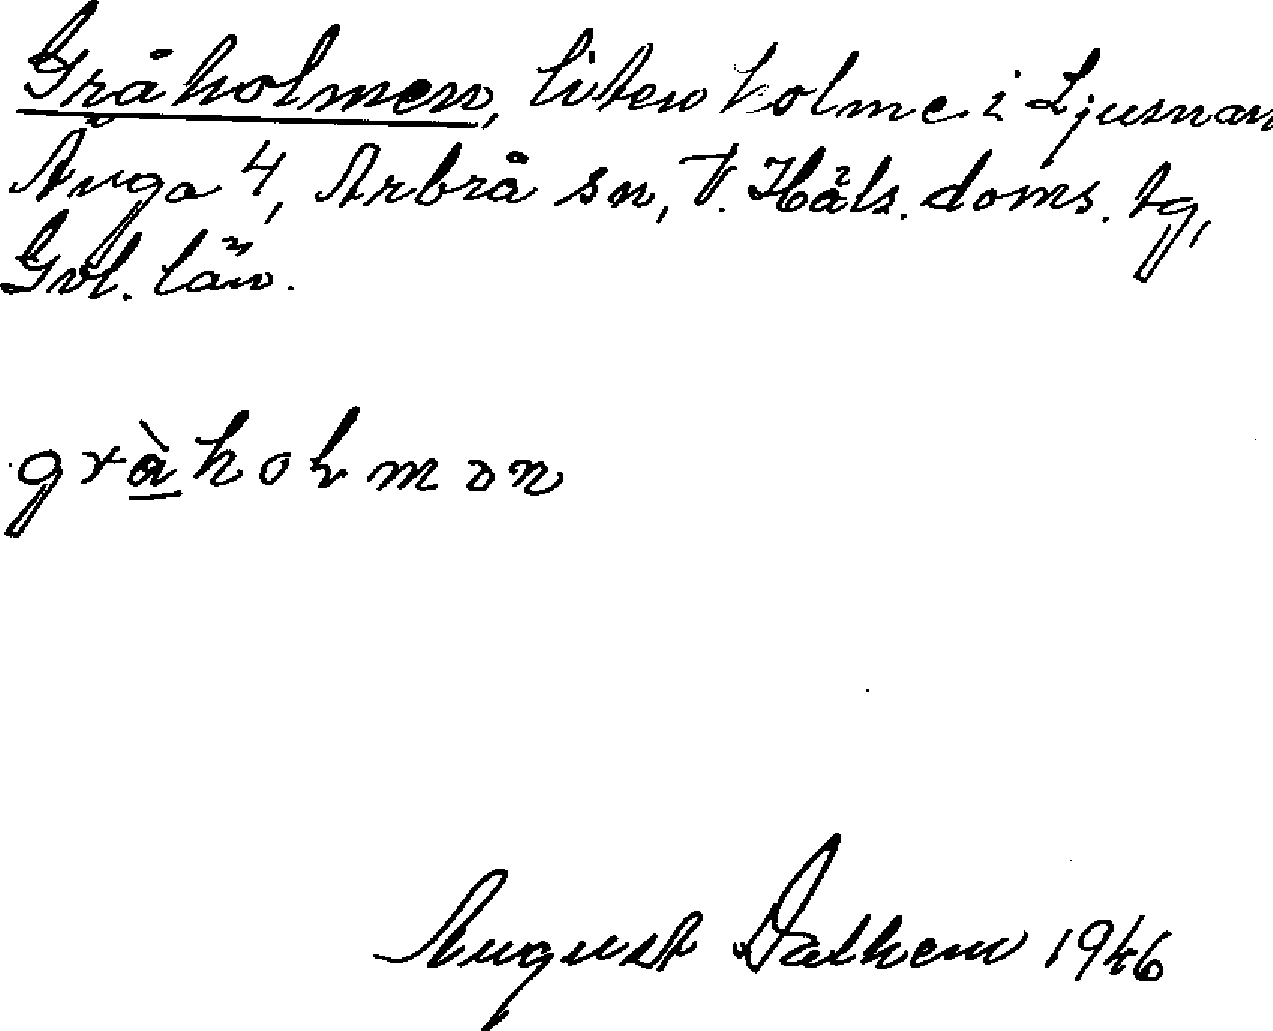 Gråholmen, liten holme i Ljusnan
Änga 4, Arbrå sn, V. Häls. doms. tg,
Gvl. län.
gràholmən
August Dathem 1946